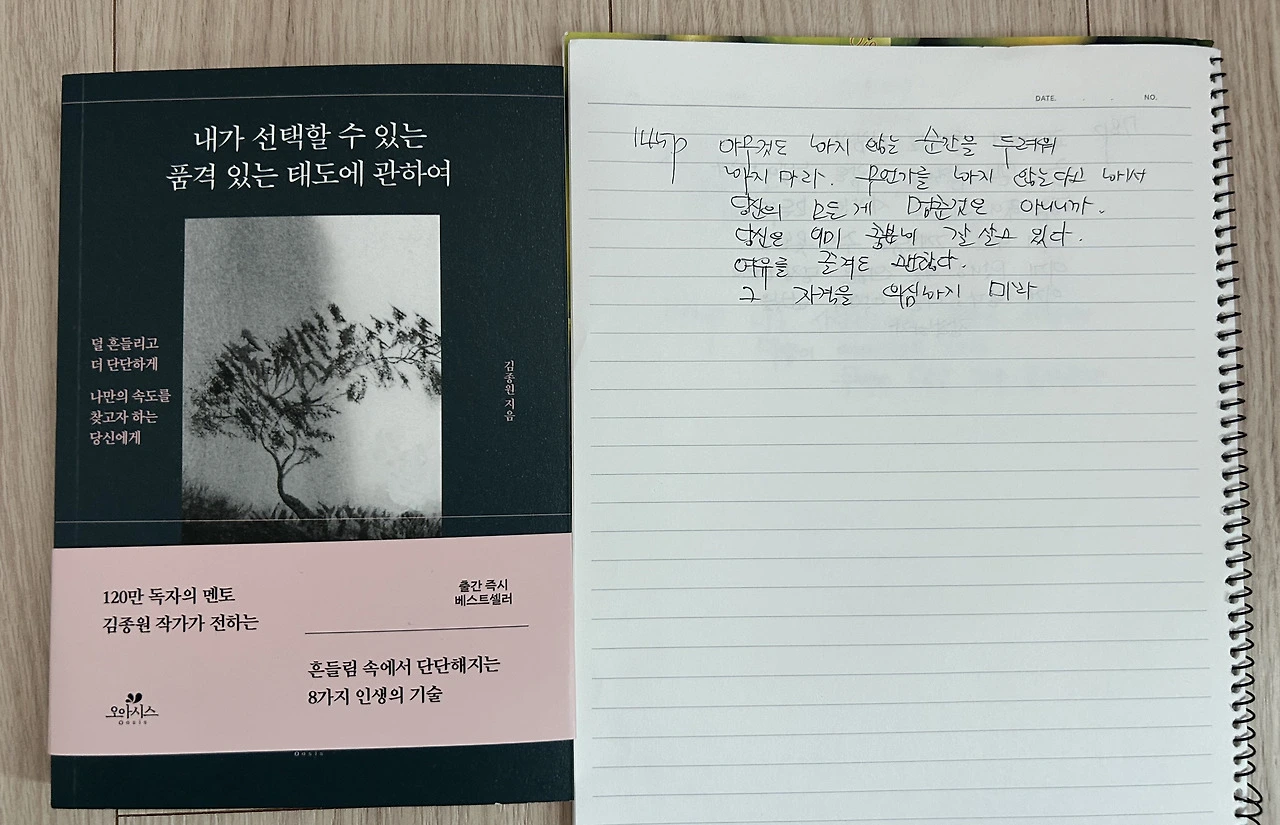 내가 선택할 수 있는
품격 있는 태도에 관하여
덜 흔들리고
더 단단하게
나만의 속도를
찾고자 하는
당신에게
김종원 지음
120만 독자의 멘토
김종원 작가가 전하는
출간 즉시
베스트셀러
흔들림 속에서 단단해지는
8가지 인생의 기술
오아시스
Oasis
Oasis
DATE. . . NO.
145p 아무것도 하지 않는 순간을 두려워
하지 마라. 무언가를 하지 않는다고 해서
당신의 모든게 멈춘것은 아니니까.
당신은 이미 충분히 잘 살고 있다.
여유를 즐겨도 괜찮다.
그 자격을 의심하지 마라